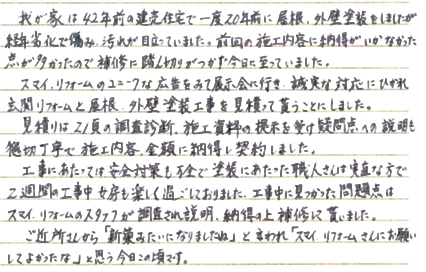 我が家は42年前の建売住宅で一度20年前に屋根、外壁塗装をしましたが
経年劣化で傷み、汚れが目立っていました。前回の施工内容に納得がいかなかった
点が多かったので補修に踏ん切りがつかず今日に至っていました。
スマイリフォームのユニークな広告をみて展示会に行き、誠実な対応にひかれ
玄関リフォームと屋根、外壁塗装工事を見積って貰うことにしました。
見積りは21頁の調査診断、施工資料の提示を受け疑問点への説明も
懇切丁寧で施工内容、金額に納得し契約しました。
工事にあたっては安全対策も万全で塗装にあたった職人さんは実直な方で
2週間の工事中女房も楽しく過ごしておりました。工事中に見つかった問題点は
スマイリフォームのスタッフが調査され説明、納得の上補修して貰いました。
ご近所さんから「新築みたいになりましたね」と言われ「スマイリフォームさんにお願い
してよかったな」と思う今日この頃です。